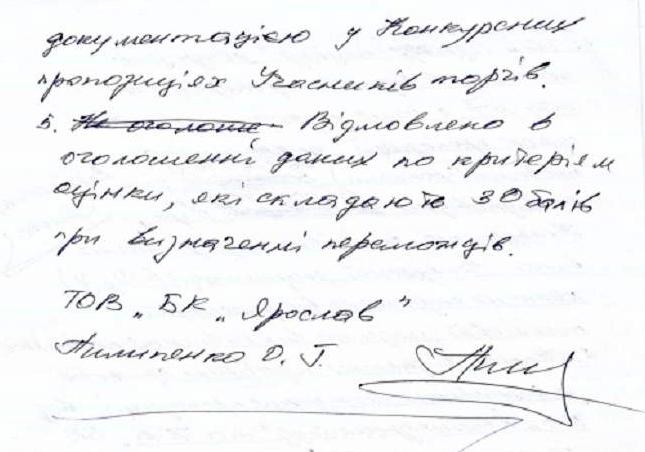 документацією у Конкурсних
пропозиціях Учасників торгів.
5. Не оголоше Відмовлено в
оголошенні даних по критеріям
оцінки, які складають 30 балів
при визначенні переможців.
ТОВ „БК „Ярослав”
Пилипенко О. Г.